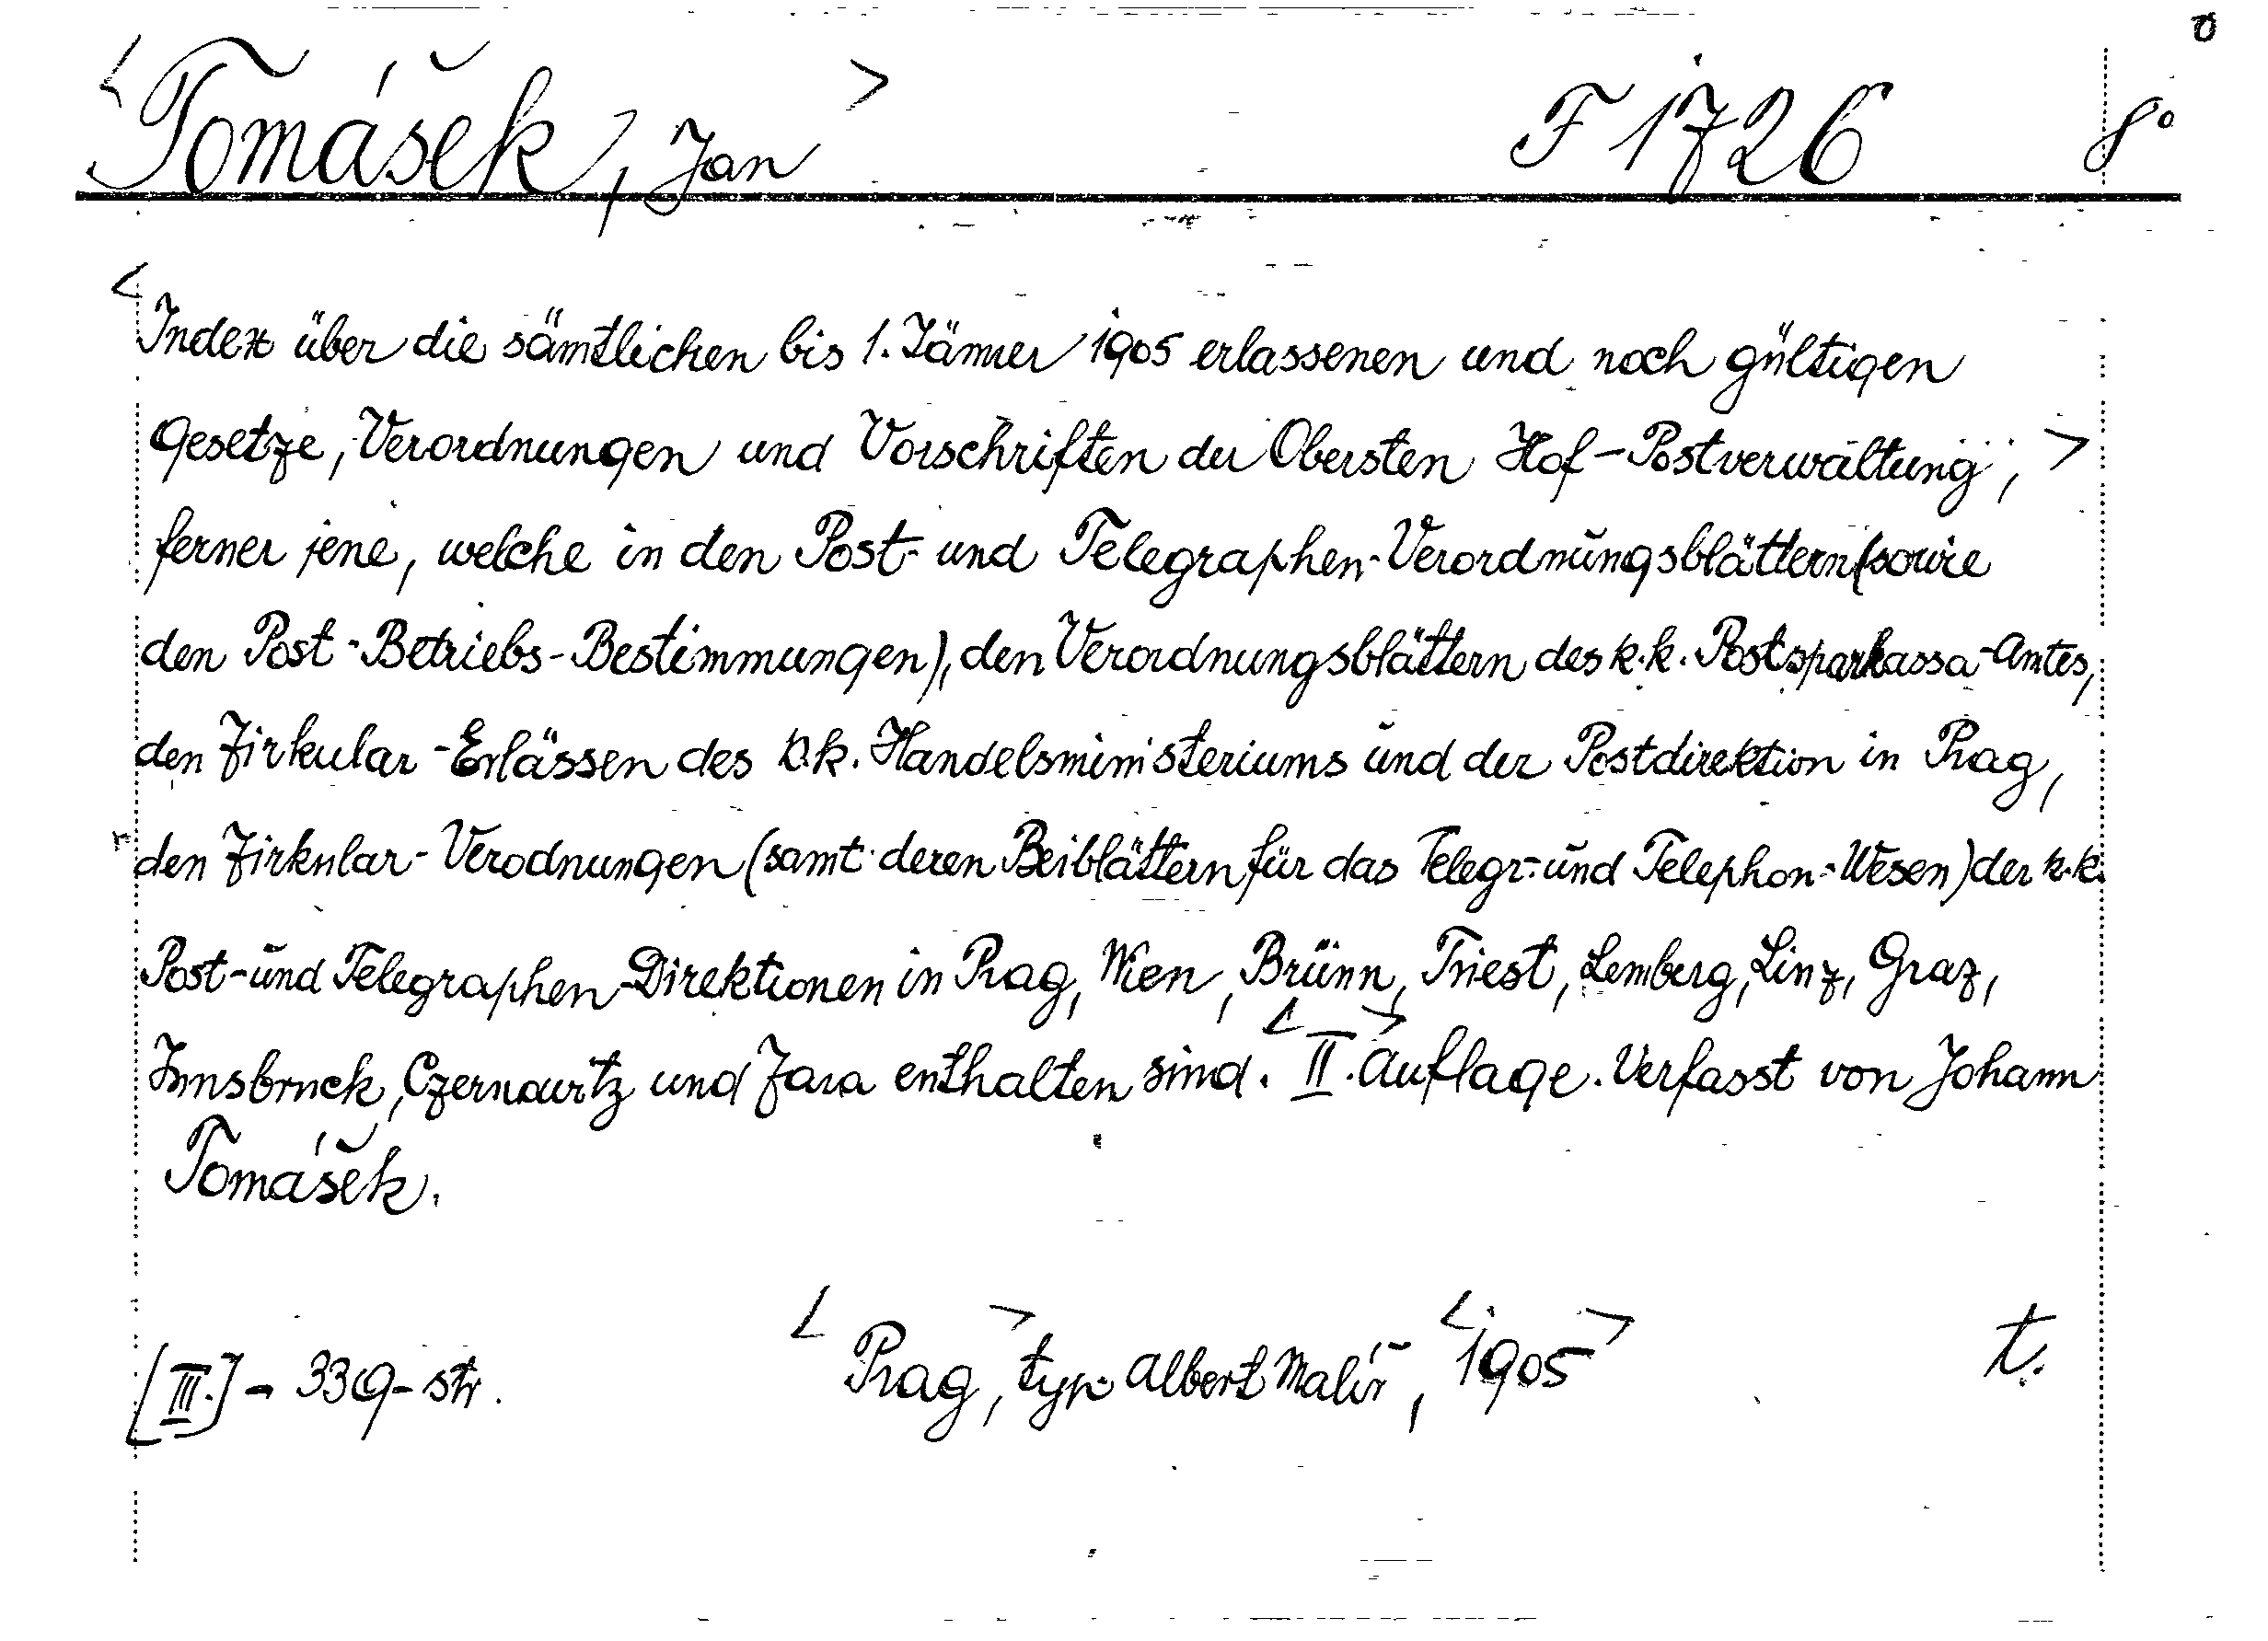 <Tomášek, Jan> F 1726 8°
<Index über die sämtlichen bis 1. Jänner 1905 erlassenen und noch gültigen
Gesetze, Verordnungen und Vorschriften der Obersten Hof-Postverwaltung, >
ferner jene, welche in den Post- und Telegraphen-Verordnungsblättern (sowie
den Post-Betriebs-Bestimmungen), den Verordnungsblättern des k.k. Postsparkassa-Amtes,
den Zirkular-Erlässen des k.k. Handelsministeriums und der Postdirektion in Prag,
den Zirkular-Verodnungen (samt deren Beiblättern für das Telegr.- und Telephon-Wesen) der k.k.
Post- und Telegraphen-Direktionen in Prag, Wien, Brünn, Triest, Lemberg, Linz, Graz,
Innsbruck, Czernowitz und Zara enthalten sind. <II.> Auflage. Verfasst von Johann
Tomášek.
[III.] - 339 - str. <Prag,> typ. Albert Malíř, <1905> t.